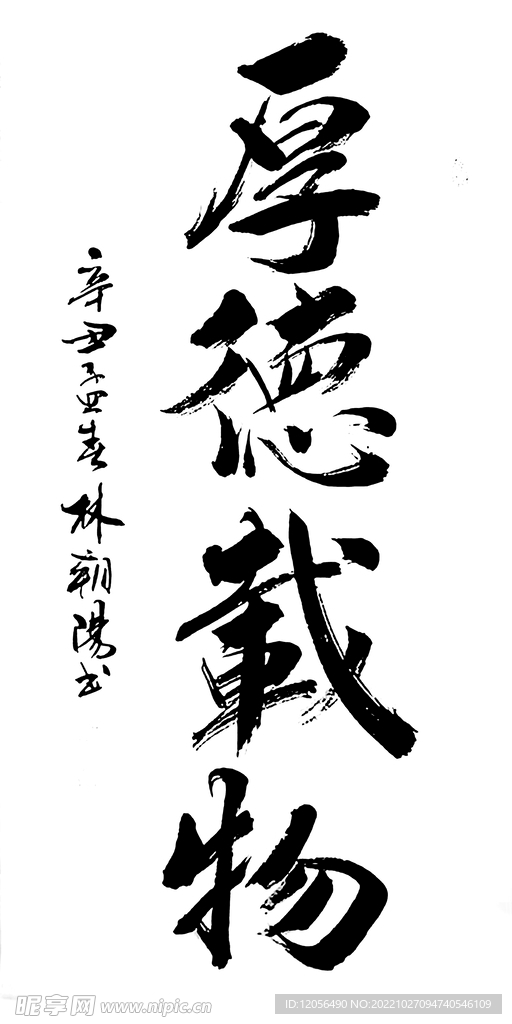 厚德載物
辛丑孟春林朝陽书
昵享网 www.nipic.cn
ID:12056490 NO:20221027094740546109